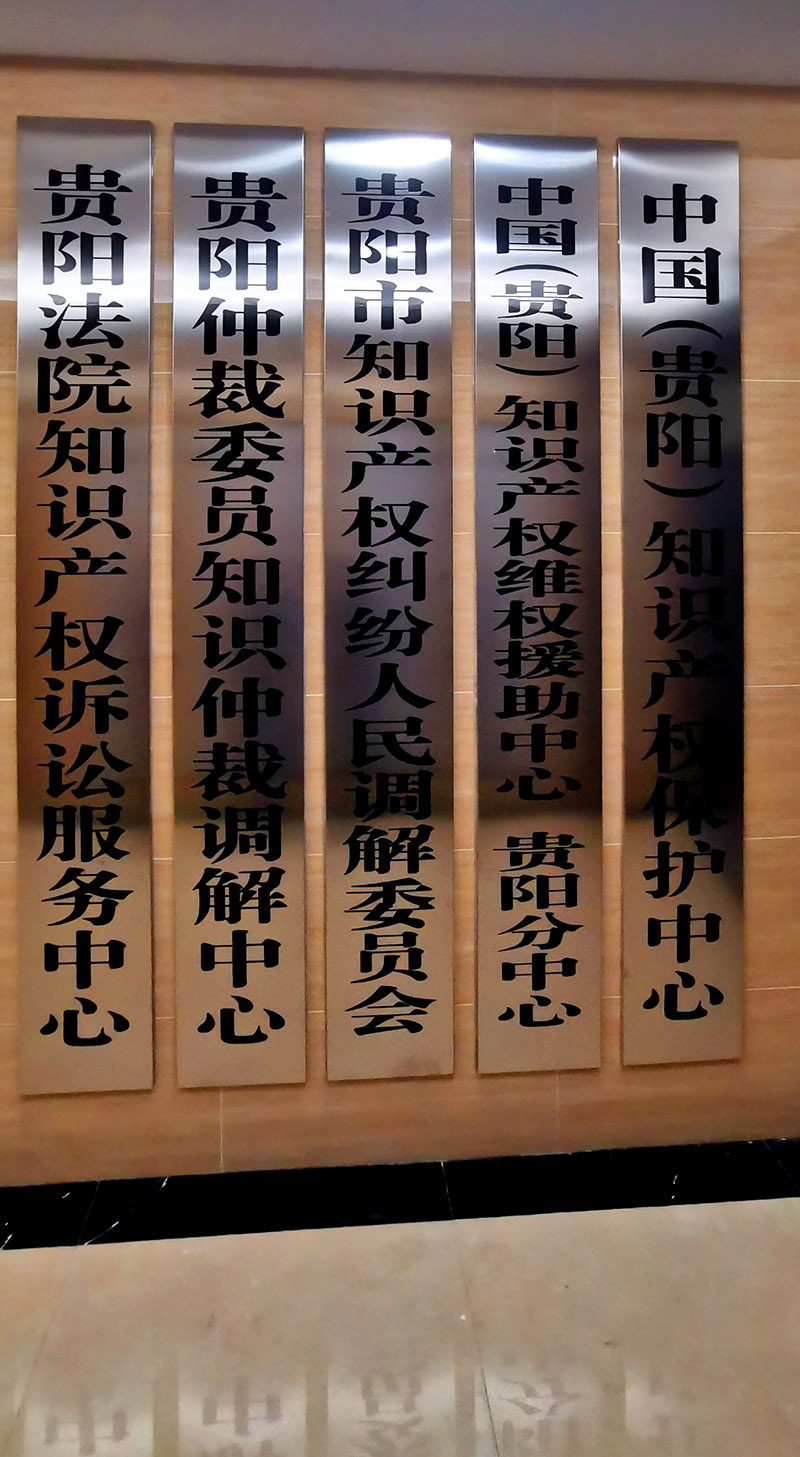 中国(贵阳)知识产权保护中心
中国(贵阳)知识产权维权援助中心 贵阳分中心
贵阳市知识产权纠纷人民调解委员会
贵阳仲裁委员知识仲裁调解中心
贵阳法院知识产权诉讼服务中心